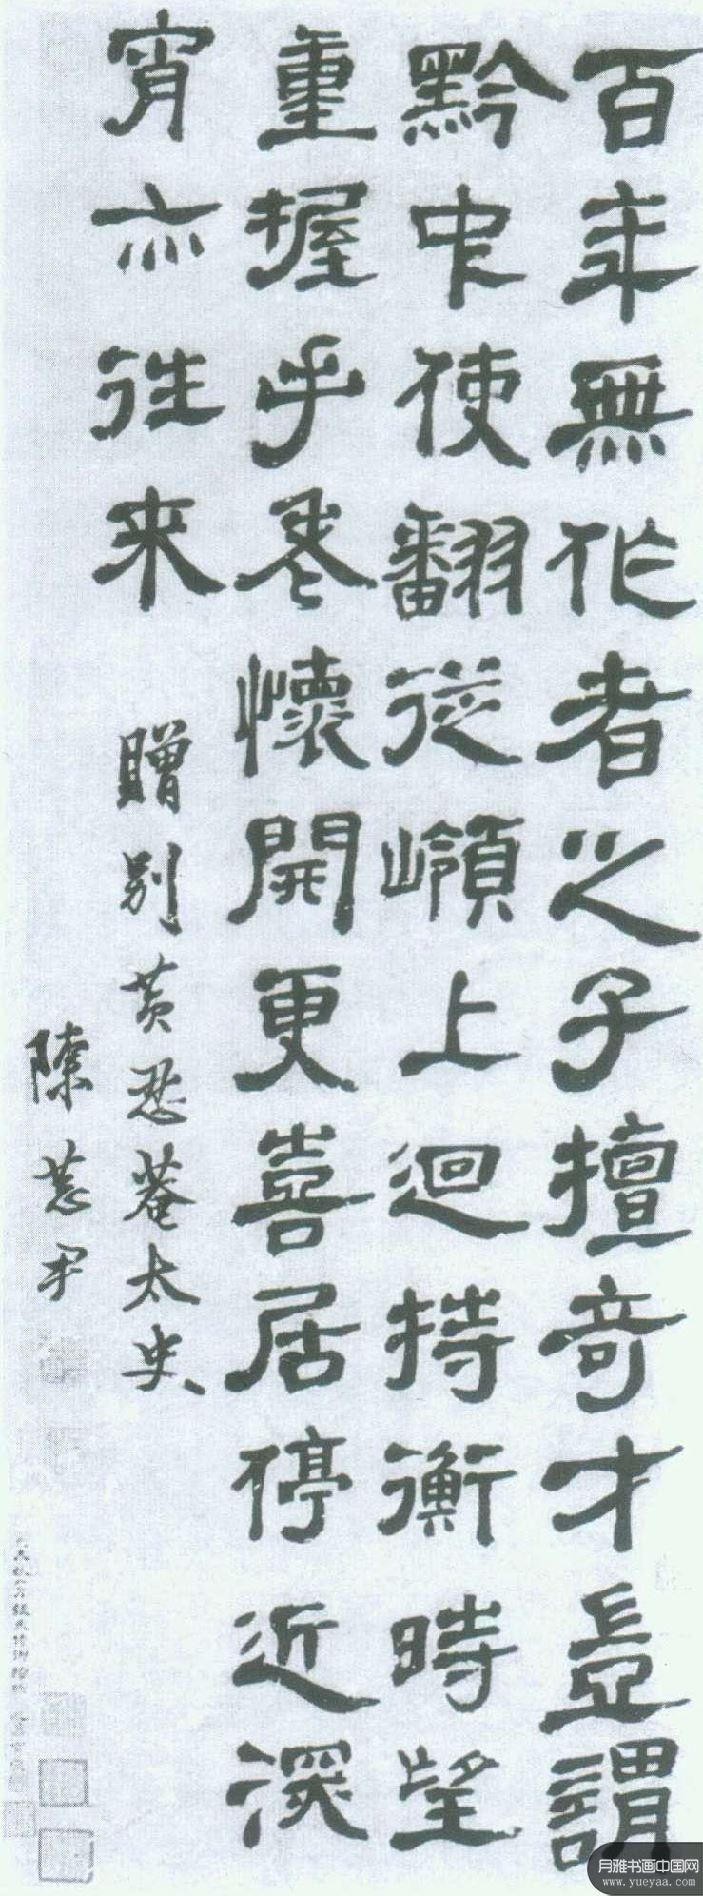 百年無作者之子擅奇才豈謂
黔中使翻從嶺上迴持衡時望
重握手老懷開更喜居停近深
宵亦往來
贈別黃忍菴太史
陳恭尹
月雅书画中国网
www.yueyaa.com